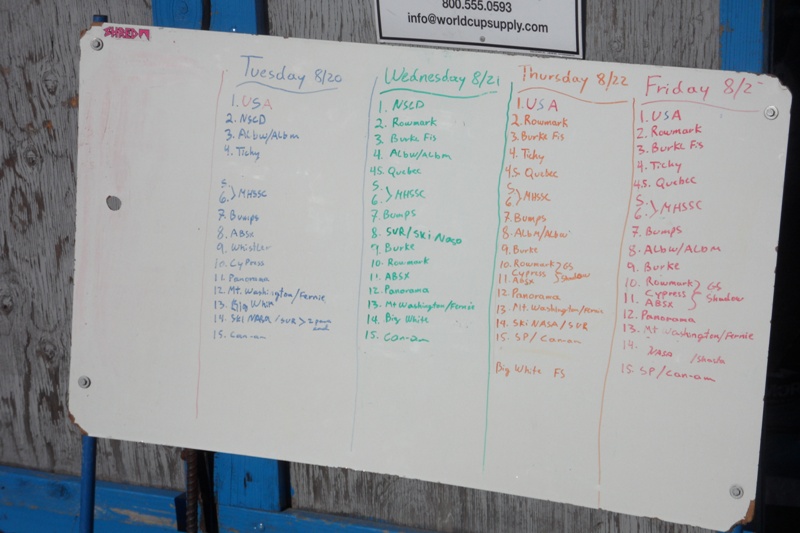 800.555.0593
info@worldcupsupply.com
Tuesday 8/20
1. USA
2. NSCD
3. Albw/Albm
4. Tichy
5.
6. } MHSSC
7. Bumps
8. ABSX
9. Whistler
10. Cypress
11. Panorama
12. Mt. Washington/Fernie
13. Big White
14. Ski NASA / SVR > 2 pass
15. Can-am
Wednesday 8/21
1. NSCD
2. Rowmark
3. Burke Fis
4. Albw/Albm
4.5. Quebec
5.
6. } MHSSC
7. Bumps
8. SVR/Ski Nasa
9. Burke
10. Rowmark
11. ABSX
12. Panorama
13. Mt Washington/Fernie
14. Big White
15. Can-am
Thursday 8/22
1. USA
2. Rowmark
3. Burke Fis
4. Tichy
4.5. Quebec
5.
6. } MHSSC
7. Bumps
8. Albm/Albw
9. Burke
10. Rowmark > GS
11. Cypress
ABSX } Shadow
12. Panorama
13. Mt. Washington/Fernie
14. Ski NASA / SVR
15. SP/Can-am
Big White FS
Friday 8/2
1. USA
2. Rowmark
3. Burke Fis
4. Tichy
4.5. Quebec
5.
6. } MHSSC
7. Bumps
8. Albw/Albm
9. Burke
10. Rowmark } GS
11. Cypress
ABSX } Shadow
12. Panorama
13. Mt Washington/Fernie
14. NASA /Shasta
15. SP/Can-am